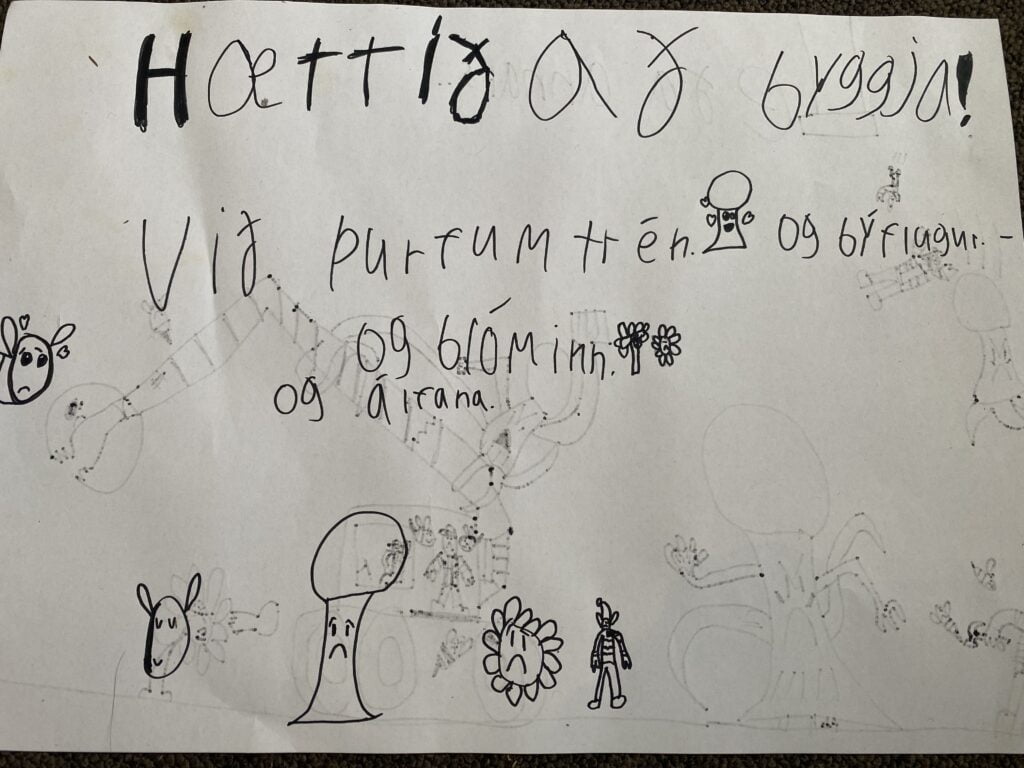 Hættið að byggja!
Við þurfum trén. og býflugur.-
og blóminn.
og álfana.